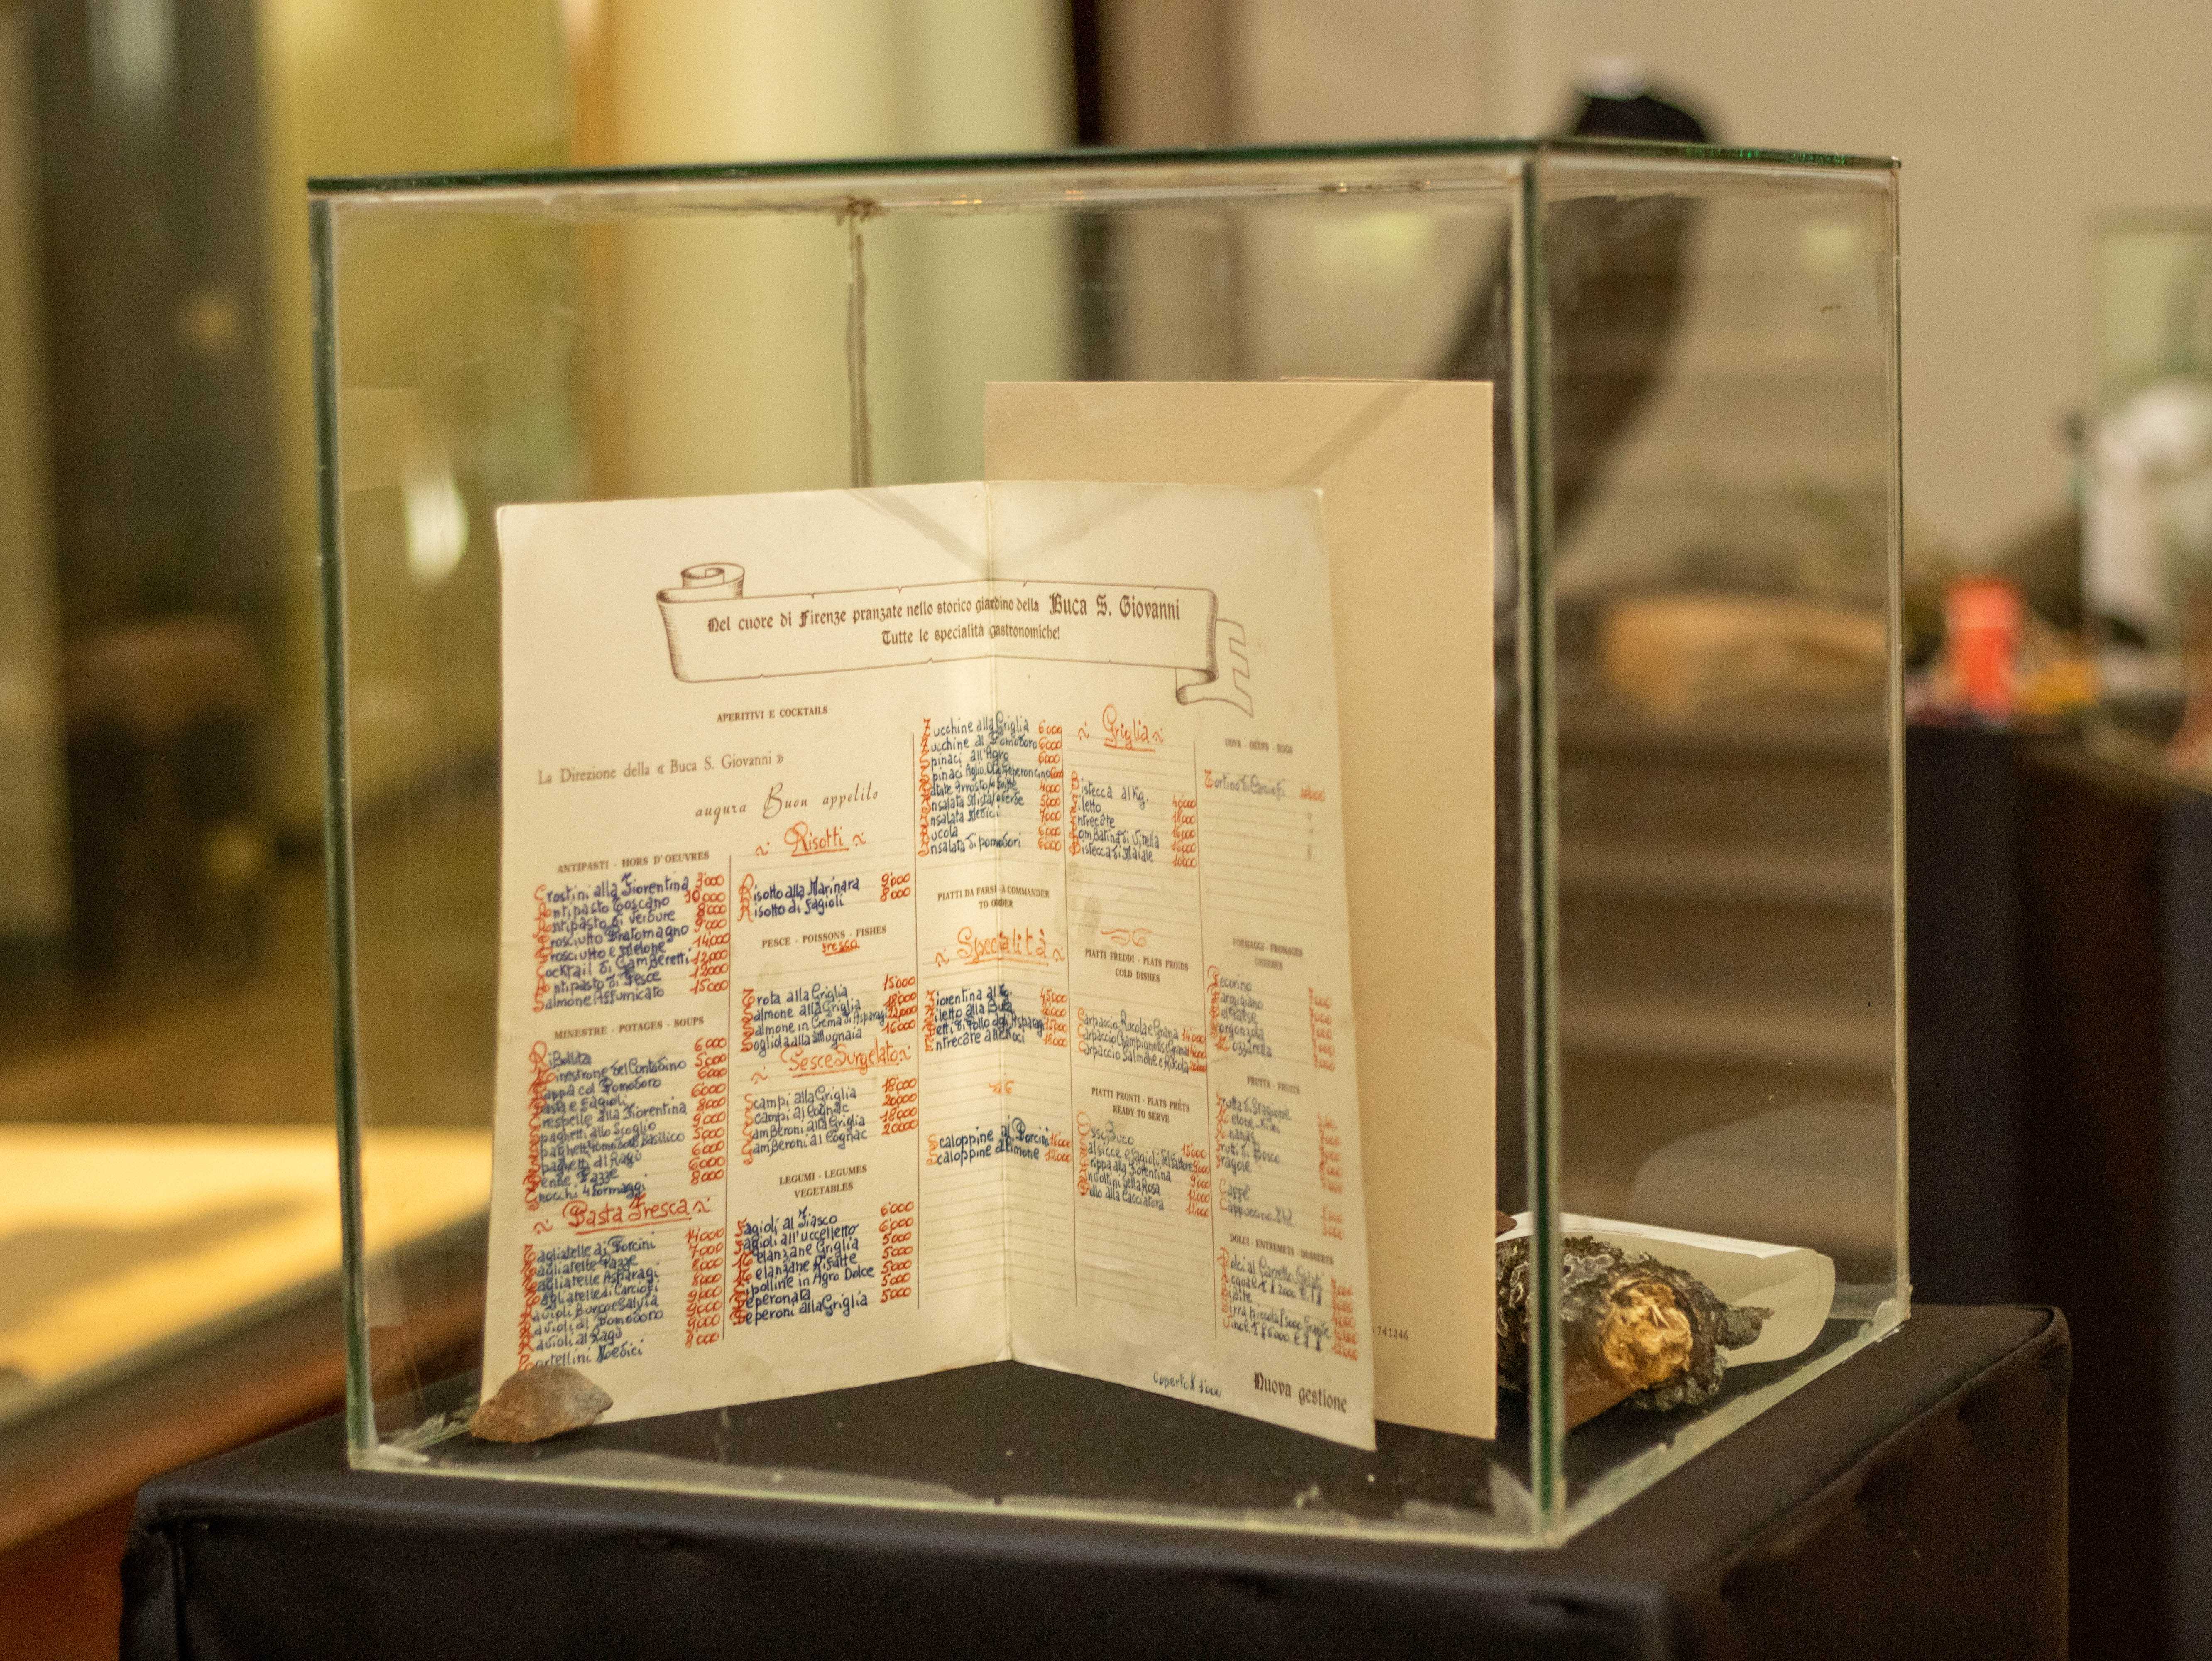 Nel cuore di Firenze pranzate nello storico giardino della Buca S. Giovanni
Tutte le specialità gastronomiche!
APERITIVI E COCKTAILS
La Direzione della « Buca S. Giovanni »
augura Buon appetito
ANTIPASTI - HORS D'OEUVRES
Crostini alla Fiorentina 7'000
Antipasto Toscano 10'000
Antipasto di Verdure 8'000
Prosciutto Pratomagno 9'000
Prosciutto e Melone 14'000
Cocktail di Gamberetti 12'000
Antipasto di Pesce 12'000
Salmone Affumicato 15'000
MINESTRE - POTAGES - SOUPS
Ribollita 6'000
Minestrone del Contadino 5'000
Pappa col Pomodoro 6'000
Pasta e Fagioli 6'000
Crespelle alla Fiorentina 8'000
Spaghetti allo Scoglio 9'000
Spaghetti Pomodoro Basilico 5'000
Spaghetti al Ragù 6'000
Penne Pazze 6'000
Gnocchi 4 Formaggi 8'000
Pasta Fresca
Tagliatelle ai Porcini 14'000
Tagliatelle Pazze 7'000
Tagliatelle Asparagi 8'000
Tagliatelle di Carciofi 8'000
Ravioli Burro e Salvia
Ravioli al Pomodoro
Ravioli al Ragù
Tortellini Medici
Risotti
Risotto alla Marinara 9'000
Risotto di Fagioli 8'000
PESCE - POISSONS - FISHES
Fresco
Trota alla Griglia 15'000
Salmone alla Griglia 18'000
Salmone in Crema di Asparagi
Sogliola alla Mugnaia 16'000
Pesce Surgelato
Scampi alla Griglia 18'000
Scampi al Cognac 20'000
Gamberoni alla Griglia 18'000
Gamberoni al Cognac 20'000
LEGUMI - LEGUMES
VEGETABLES
Fagioli al Fiasco 6'000
Fagioli all'uccelletto 6'000
Melanzane Griglia 5'000
Melanzane Rifatte 5'000
Cipolline in Agro Dolce 5'000
Peperonata 5'000
Peperoni alla Griglia 5'000
Zucchine alla Griglia 6'000
Zucchine al Pomodoro 6'000
Spinaci all'Agro 6'000
Spinaci Aglio Olio Peperoncino 6000
Patate Arrosto 4000
Insalata Mista o Verde 5000
Insalata Medici 7000
Rucola 6000
Insalata di pomodori 6000
PIATTI DA FARSI - A COMMANDER
TO ORDER
Specialità
Fiorentina al Kg. 45000
Filetto alla Buca
Petti di Pollo agli Asparagi
Entrecôte alle Noci 18000
Scaloppine ai Porcini 16000
Scaloppine al Limone 12000
Griglia
Bistecca al Kg. 40000
Filetto
Entrecôte
Lombatina di Vitella
Bistecca di Maiale
PIATTI FREDDI - PLATS FROIDS
COLD DISHES
Carpaccio Rucola e Grana 14000
Carpaccio Champignons e Grana
Carpaccio Salmone e Rucola
PIATTI PRONTI - PLATS PRÊTS
READY TO SERVE
Ossobuco 15000
Salsicce e Fagioli
Trippa alla Fiorentina 9000
Involtini della Rosa
Pollo alla Cacciatora 11000
UOVA - OEUFS - EGGS
Tortino di Carciofi
FORMAGGI - FROMAGES
CHEESES
Pecorino 7000
Parmigiano 7000
Gorgonzola 7000
Mozzarella 7000
FRUTTA - FRUITS
Frutta di Stagione
Melone - Kiwi
Ananas
Frutti di Bosco
Fragole
Caffè
Cappuccino
DOLCI - ENTREMETS - DESSERTS
Dolci al Carrello Gelati
Coperto £ 3'000
Nuova gestione
741246